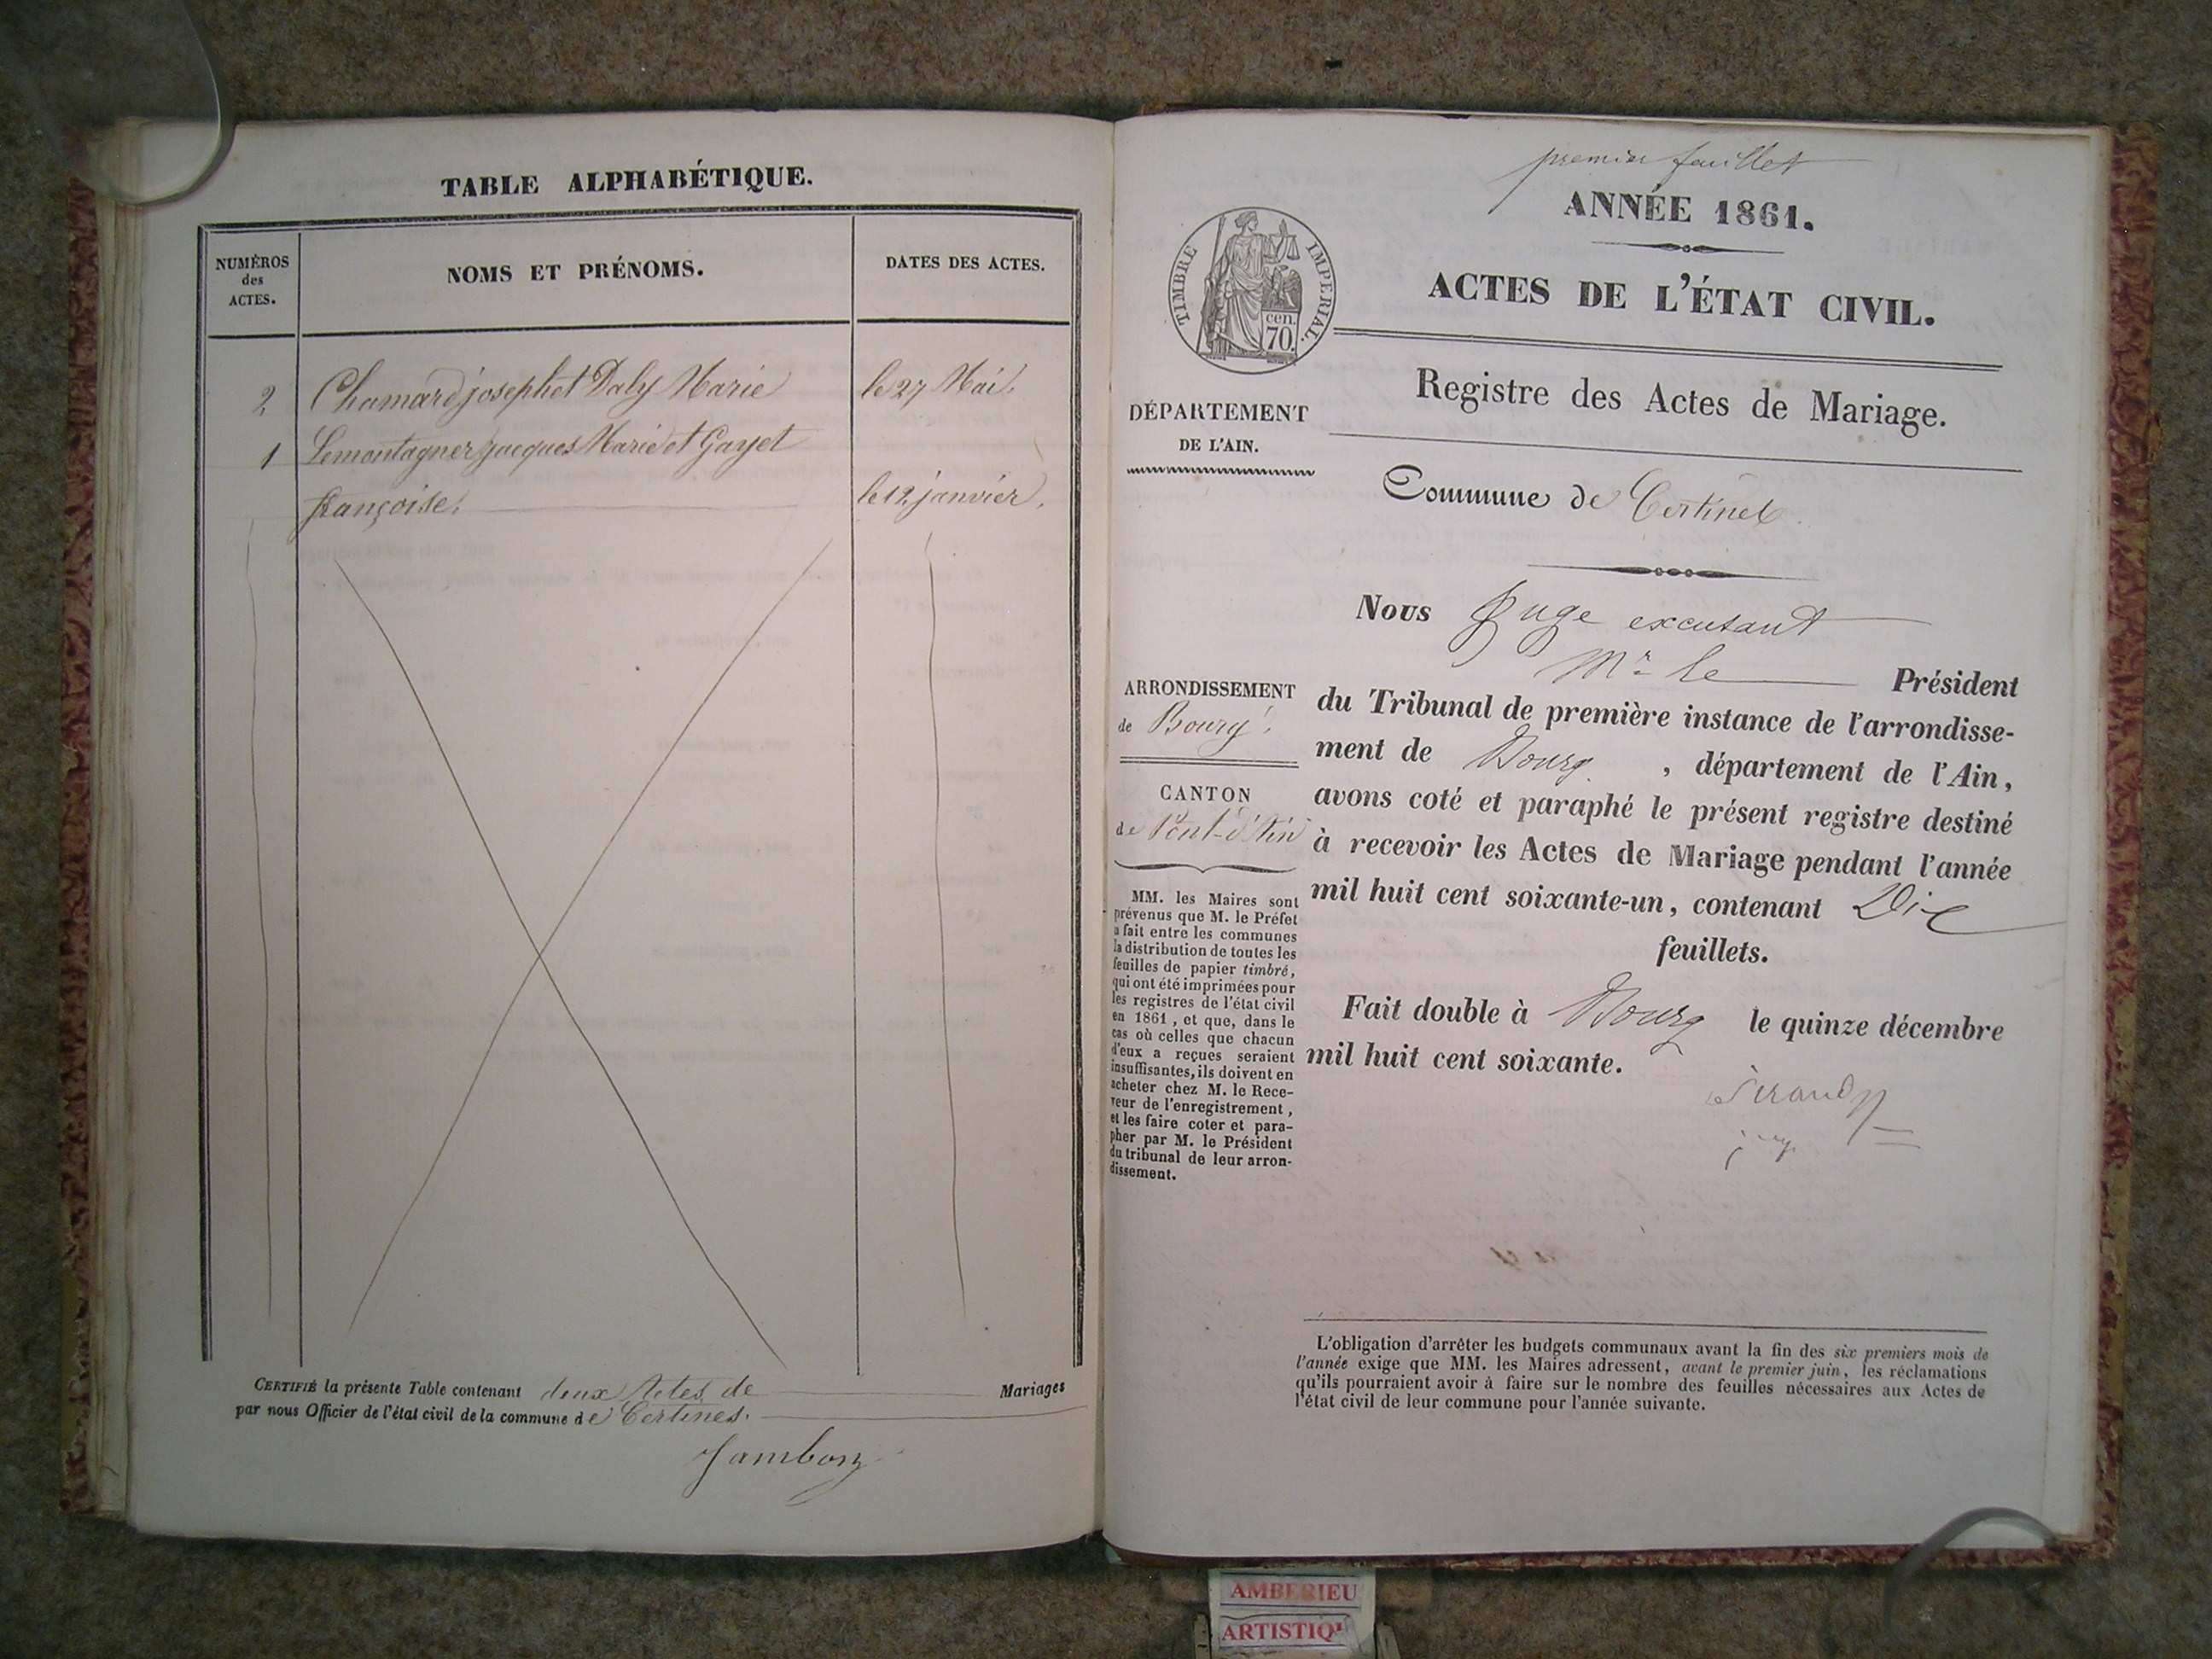 TABLE ALPHABÉTIQUE.
NUMÉROS
des
ACTES.
NOMS ET PRÉNOMS.
DATES DES ACTES.
2 Chamard joseph et Daly Marie le 27 Mai.
1 Lemontagner jacques Marie et Gayet
françoise. le 12 janvier.
CERTIFIÉ la présente Table contenant deux Actes de Mariages
par nous Officier de l'état civil de la commune de Certines.
Jambon
premier feuillet
ANNÉE 1861.
TIMBRE IMPERIAL.
cen.
70.
ACTES DE L'ÉTAT CIVIL.
Registre des Actes de Mariage.
DÉPARTEMENT
DE L'AIN.
Commune de Certines
Nous Juge excusant
Mr le Président
du Tribunal de première instance de l'arrondisse-
ment de Bourg, département de l'Ain,
avons coté et paraphé le présent registre destiné
à recevoir les Actes de Mariage pendant l'année
mil huit cent soixante-un, contenant Dix
feuillets.
Fait double à Bourg le quinze décembre
mil huit cent soixante.
ARRONDISSEMENT
de Bourg.
CANTON
de Pont-d'Ain
MM. les Maires sont
prévenus que M. le Préfet
a fait entre les communes
la distribution de toutes les
feuilles de papier timbré,
qui ont été imprimées pour
les registres de l'état civil
en 1861, et que, dans le
cas où celles que chacun
d'eux a reçues seraient
insuffisantes, ils doivent en
acheter chez M. le Rece-
veur de l'enregistrement,
et les faire coter et para-
pher par M. le Président
du tribunal de leur arron-
dissement.
L'obligation d'arrêter les budgets communaux avant la fin des six premiers mois de
l'année exige que MM. les Maires adressent, avant le premier juin, les réclamations
qu'ils pourraient avoir à faire sur le nombre des feuilles nécessaires aux Actes de
l'état civil de leur commune pour l'année suivante.
AMBERIEU
ARTISTIQU